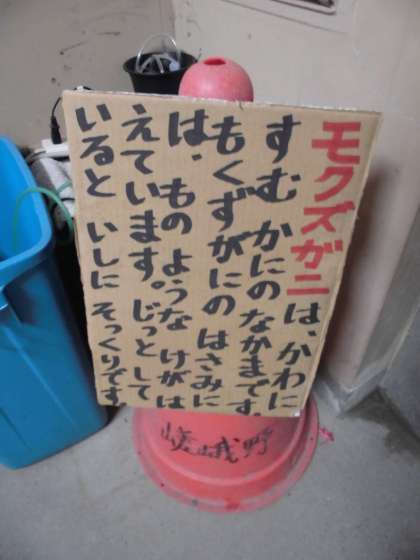 モクズガニは、かわに
すむ かにの なかまです。
もくずがにの はさみに
は、ものような けがは
えています。じっとして
いると いしに そっくりです。
嵯峨野